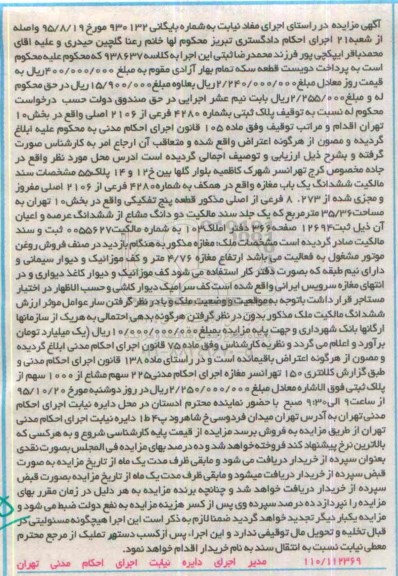 آگهی مزایده در راستای اجرای مفاد نیابت به شماره بایگانی ۹۳۰۱۳۲ مورخ ۹۵/۸/۱۹ واصله
از شعبه ۲۱ اجرای احکام دادگستری تبریز محکوم لها خانم رعنا گلچین حیدری و علیه اقای
محمدباقر ایپکچی پور فرزند محمدرضا ثبتی این اجرا به کلاسه ۹۳۸۶۳۷ که محکوم علیه محکوم
است به پرداخت دویست قطعه سکه تمام بهار آزادی مقوم به مبلغ ۴۰۰/۰۰۰/۰۰۰ ریال به
قیمت روز معادل مبلغ ۲/۲۴۰/۰۰۰/۰۰۰ ریال بعلاوه مبلغ ۱۵/۹۰۰/۰۰۰ ریال در حق محکوم
له و مبلغ ۲/۲۵۵/۰۰۰ ریال بابت نیم عشر اجرایی در حق صندوق دولت حسب درخواست
محکوم له نسبت به توقیف پلاک ثبتی بشماره ۴۲۸۰ فرعی از ۲۱۰۶ اصلی واقع در بخش ۱۰
تهران اقدام و مراتب توقیف وفق ماده ۱۰۵ قانون اجرای احکام مدنی به محکوم علیه ابلاغ
گردیده و مصون از هرگونه اعتراض واقع شده و متعاقب آن ارجاع امر به کارشناس صورت
گرفته و بشرح ذیل ارزیابی و توصیف اجمالی گردیده است ادرس محل مورد نظر واقع در
جاده مخصوص کرج تهرانسر شهرک کاظمیه بلوار گلها بین خ ۱۲ و ۱۴ پلاک ۵۵ مشخصات سند
مالکیت ششدانگ یک باب مغازه واقع در همکف به شماره ۴۲۸۰ فرعی از ۲۱۰۶ اصلی مفروز
و مجزی شده از ۲۷۳. ۸ فرعی از اصلی مذکور قطعه پنج تفکیکی واقع در بخش ۱۰ تهران به
مساحت ۳۵/۳۶ مترمربع که یک جلد سند مالکیت دو دانگ مشاع از ششدانگ عرصه و اعیان
آن ذیل ثبت ۱۲۶۹۴ صفحه ۳۶۶ دفتر املاک ۱۰۳ به شماره مالکیت ۰۰۵۵۶۲۷ ثبت و سند
مالکیت صادر گردیده است مشخصات ملک: مغازه مذکور به هنگام بازدید در صنف فروش روغن
موتور مشغول به فعالیت می باشد ارتفاع مغازه ۴/۷۶ متر و کف موزائیک و دیوار سیمانی و
دارای نیم طبقه که بصورت دفتر کار استفاده می شود کف موزائیک و دیوار کاغذ دیواری و در
انتهای مغازه سرویس ایرانی واقع شده است کف سرامیک دیوار کاشی و حسب الاظهار در اختیار
مستاجر قرار داشت باتوجه به موقعیت و وضعیت ملک و با در نظر گرفتن سار عوامل موثر ارزش
ششدانگ مالکیت ملک مذکور بدون در نظر گرفتن هرگونه بدهی احتمالی به هریک از سازمانها
ارگانها بانک شهرداری و جهت پایه مزایده بمبلغ ۱۰/۰۰۰/۰۰۰/۰۰۰ ریال (یک میلیارد تومان
برآورد و اعلام می گردد و نظریه کارشناس وفق ماده ۷۵ قانون اجرای احکام مدنی ابلاغ گردیده
و مصون از هرگونه اعتراض باقیمانده است و در راستای ماده ۱۳۸ قانون اجرای احکام مدنی و
طبق گزارش کلانتری ۱۵۰ تهرانسر مغازه اجرای احکام مدنی ۲۲۵ سهم مشاع از ۱۰۰۰ سهم از
پلاک ثبتی فوق الاشاره معادل مبلغ ۲/۲۵۰/۰۰۰/۰۰۰ ریال در روز دوشنبه مورخ ۹۵/۱۰/۲۰
از ساعت ۹ الی ۹:۳۰ صبح با حضور نماینده محترم ادستان در محل دایره نیابت اجرای احکام
مدنی تهران به آدرس تهران میدان فردوسی خ شاهرود پ ۴ ط ۱ دایره نیابت اجرای احکام مدنی
تهران از طریق مزایده به فروش برسد مزایده از قیمت پایه کارشناسی شروع و به هرکسی که
بالاترین نرخ پیشنهاد کند فروخته خواهد شد و ده درصد بهای مزایده فی المجلس بصورت نقدی
بعنوان سپرده از خریدار دریافت می شود و مابقی ظرف مدت یک ماه از تاریخ مزایده به صورت
قبض سپرده از خریدار دریافت میشود و مابقی ظرف مدت یک ماه از تاریخ مزایده بصورت قبض
سپرده از خریدار دریافت خواهد شد و چنانچه برنده مزایده به هر دلیل در زمان مقرر بهای
مزایده را نپردازد ده درصد سپرده وی پس از کسر هزینه مزایده به نفع دولت ضبط می شود و
مزایده یکبار دیگر تجدید خواهد گردید ضمنا لازم به ذکر است این اجرا هیچگونه مسئولیتی در
قبال تخلیه و تحویل مال توقیفی ندارد و این اجرا، پس از کسب دستور تملیک از مرجع محترم
معطی نیابت نسبت به انتقال سند به نام خریدار اقدام خواهد نمود.
۱۱۰/۱۱۲۳۶۹ مدیر اجرای دایره نیابت اجرای احکام مدنی تهران